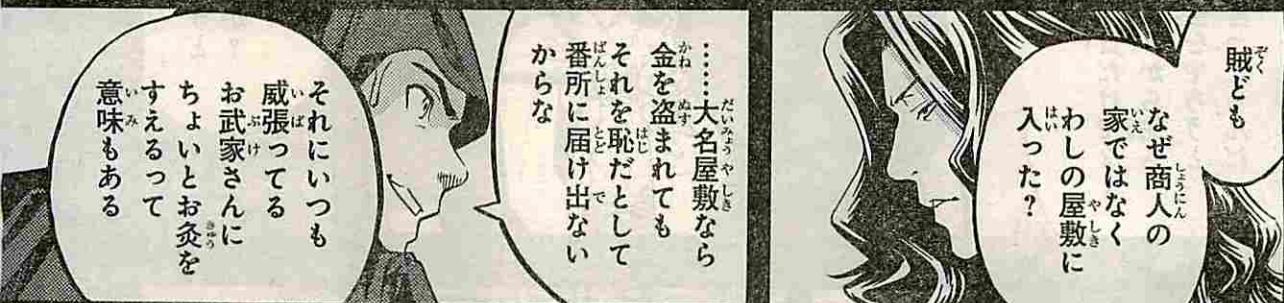 賊ども
なぜ商人の
家ではなく
わしの屋敷に
入った？
……大名屋敷なら
金を盗まれても
それを恥だとして
番所に届け出ない
からな
それにいつも
威張ってる
お武家さんに
ちょいとお灸を
すえるって
意味もある